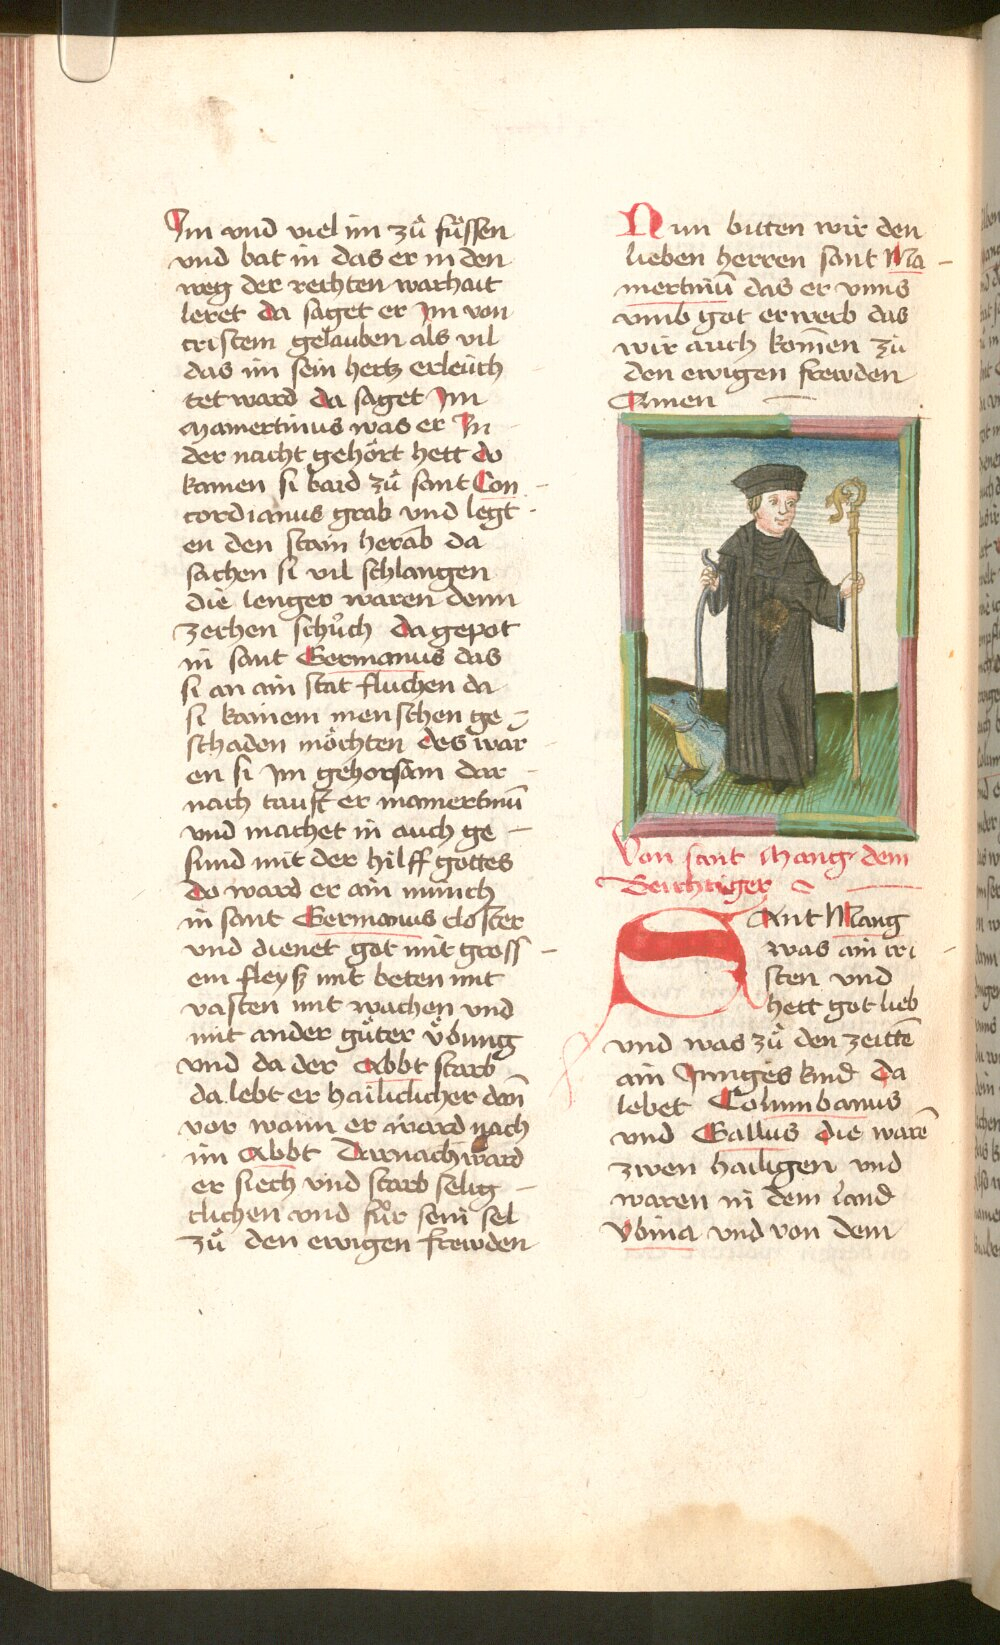 Im vnd viel im zů fu̓ssen
vnd bat in das er in den
weg der rechten warhait
leret da saget er Im von
cristem gelauben als vil
das im sein hertz erleu̓ch
tet ward da saget Im
Mamertinus was er In
der nacht gehört hett do
kamen si bard zů sant Con
cordianus grab vnd legt
en den stain herab da
sachen si vil schlangen
die lenger waren denn
zechen schu̓ch da gepot
in sant Germanus das
si an ain stat fluchen da
si kainem menschen ge
schaden möchten des war
en si Im gehorsam dar
nach tauft er mamertinū
vnd machet in auch ge
sund mit der hilff gottes
Do ward er ain munich
in sant Germanus closter
vnd dienet got mit gross
em fleyß mit beten mit
vasten mit wachen vnd
mit ander gu̓ter v̈bung
vnd da der Abbt starb
da lebt er hailiclicher dañ
vor wann er ward nach
im Abbt Darnach ward
er siech vnd starb selig
clichen vnd fu̓r sein sel
zů den ewigen frewden
Nun bitten wir den
lieben herren sant Ma
mertinū das er vnns
vmb got erwerb das
wir auch kom̄en zů
den ewigen frewden
Amen
Von sant Mang dem
Beichtiger
SAnt Mang
was ain cri
sten vnd
hett got lieb
vnd was zů den zeittē
ain Junges kind Da
lebet Columbanus
vnd Gallus die warē
zwen hailigen vnd
waren in dem Land
Vbina vnd von dem